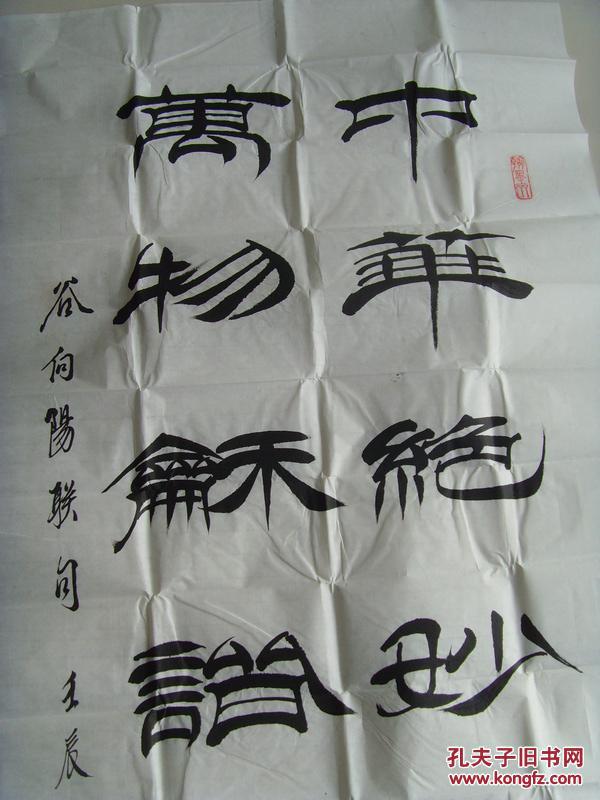 中華絶妙
萬物龢諧
谷向陽联句 壬辰
孔夫子旧书网
www.kongfz.com